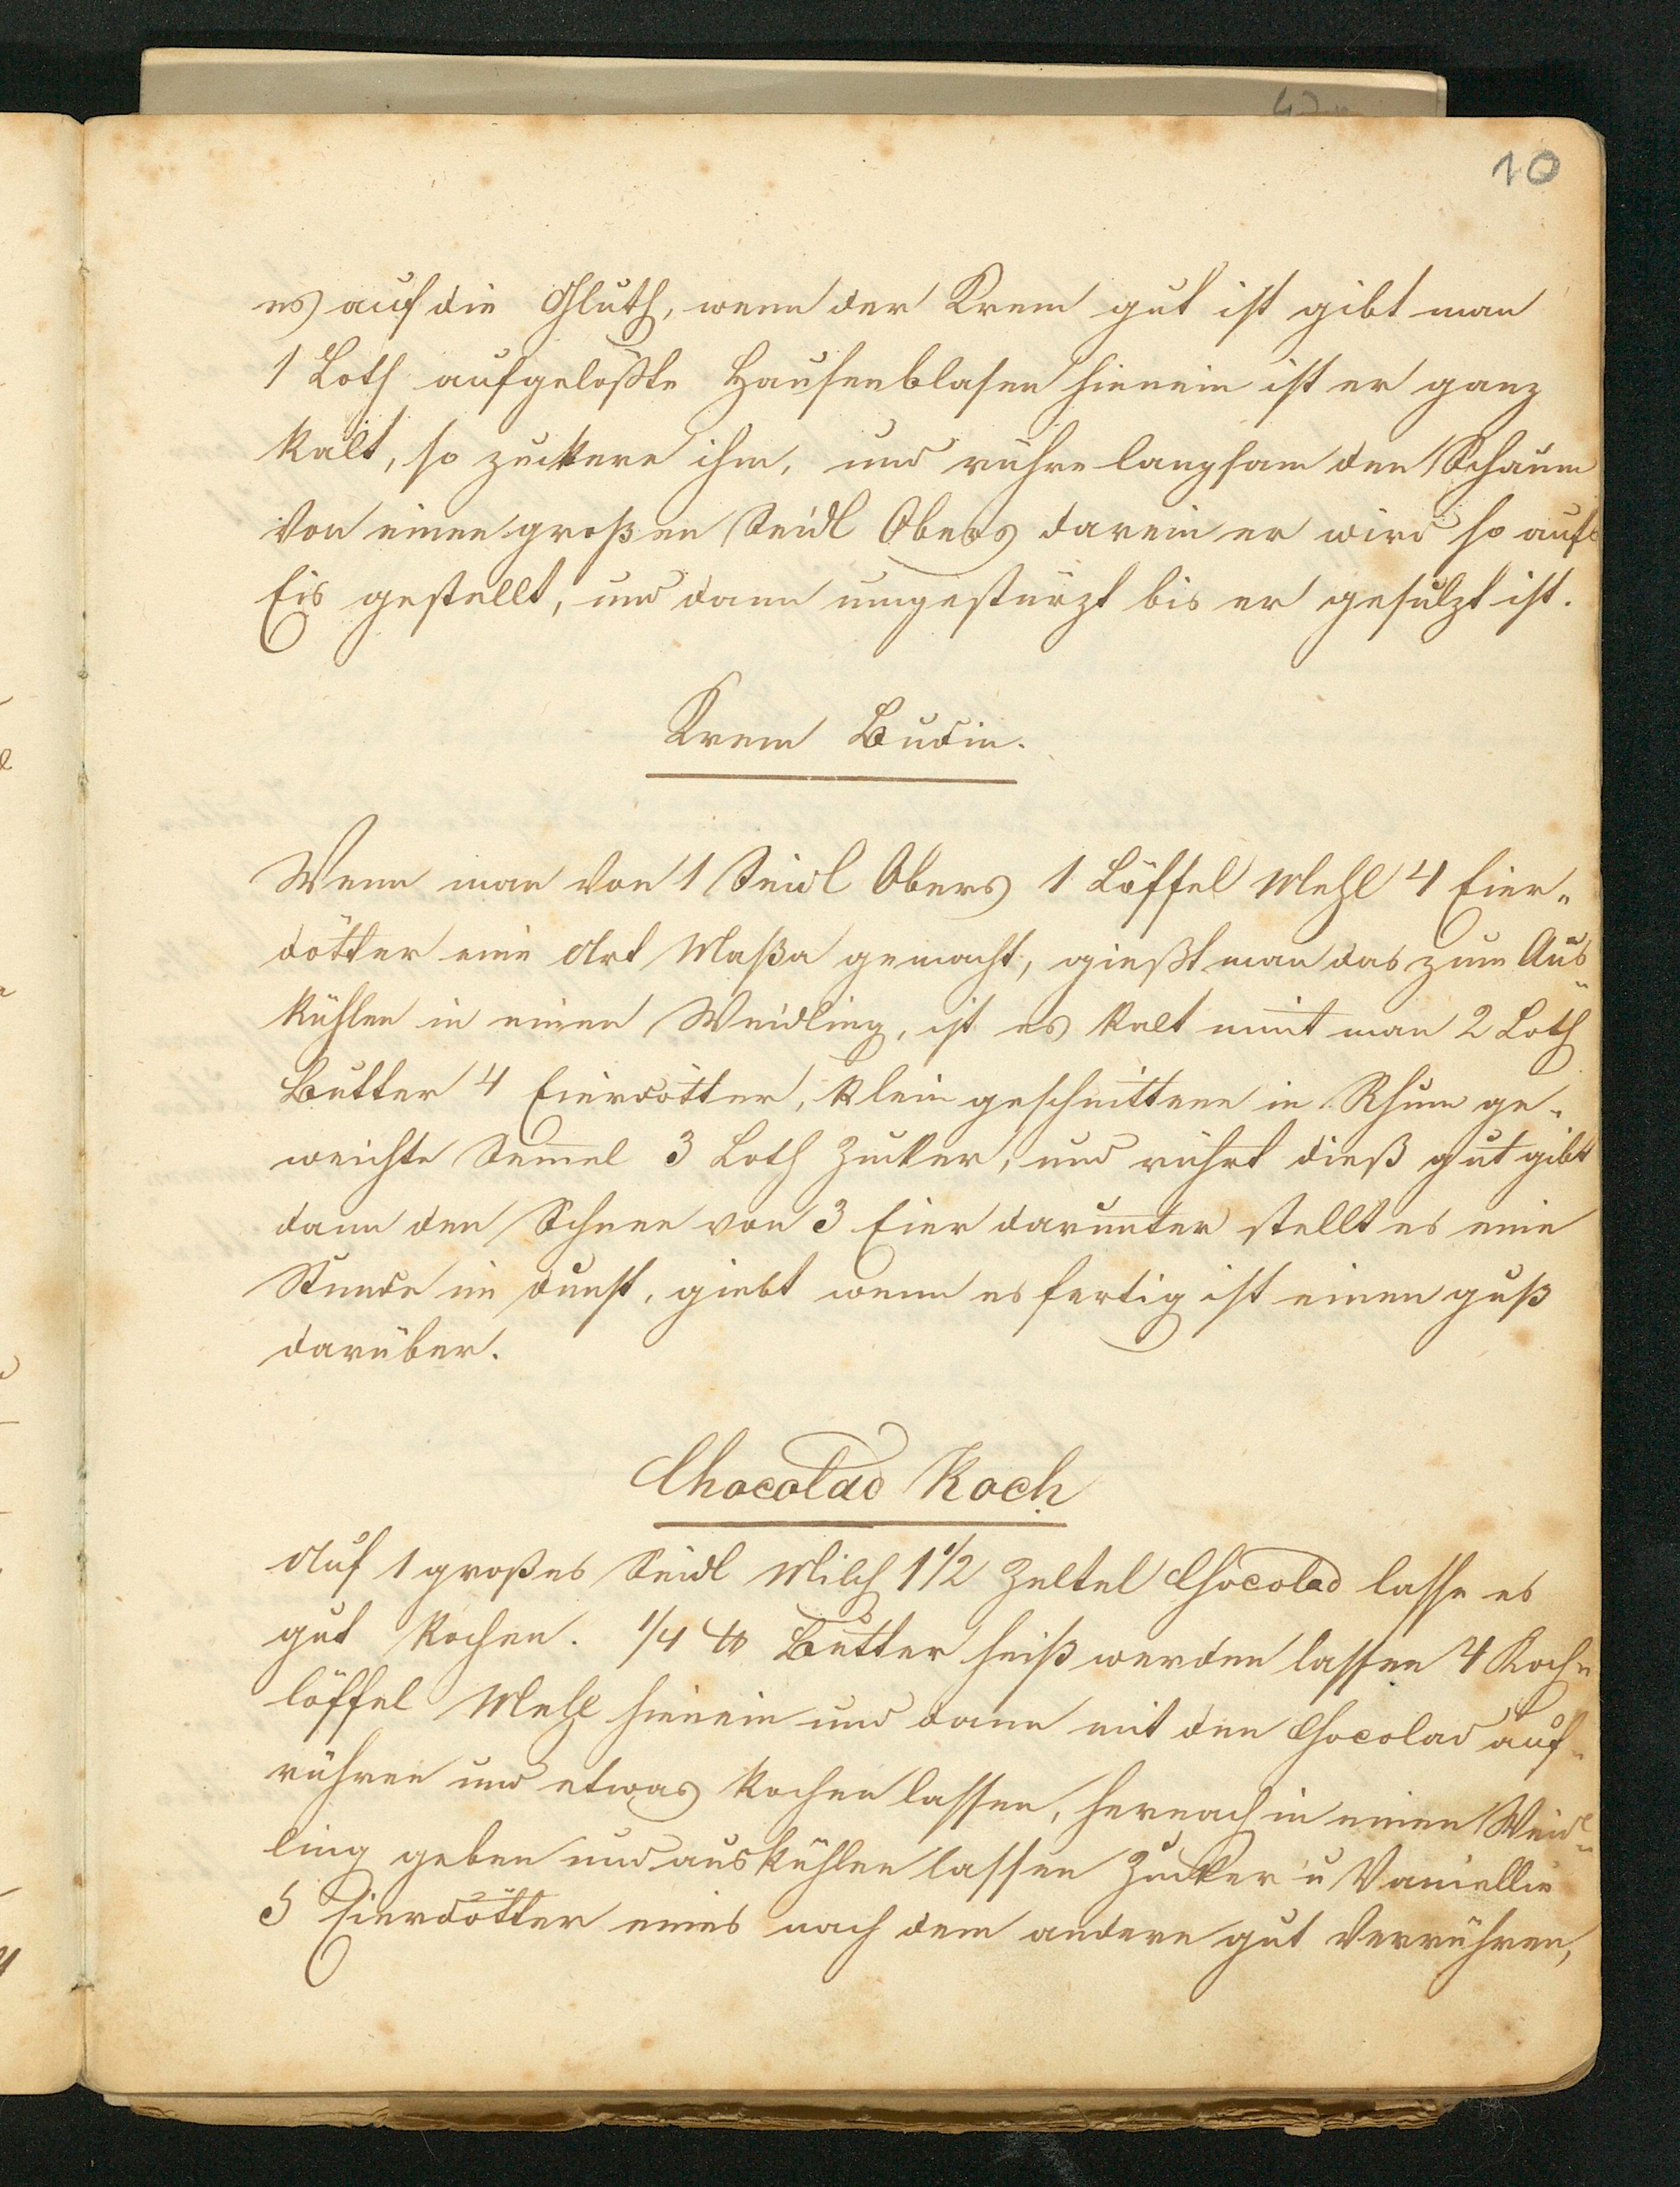 10
es auf die Gluth, wenn der Krem gut ist gibt man
1 Loth aufgelößte Hausenblasen hienein ist er ganz
kalt, so zuckere ihm, und rühre langsam den Schaum
von einen großen Seidl Obers darein er wird so aufs
Eis gestellt, und dann umgestürzt bis er gesulzt ist.
Krem Budin.
Wenn man von 1 Seidl Obers 1 Löffel Mehl 4 Eier-
dötter eine Art Maßa gemacht, gießt man das zum Aus-
kühlen in einen Weidling, ist es kalt nimt man 2 Loth
Butter 4 Eierdötter, klein geschnittene in Rhum ge-
weichte Semel 3 Loth Zucker, und rührt dieß gut gibt
dann den Schnee von 3 Eier darunter stellt es eine
Stunde in dunst, giebt wenn es fertig ist einen guß
darüber.
Chocolad Koch
Auf 1 großes Seidl Milch 1 1/2 Zeltel Chocolad lasse es
gut kochen. 1/4 ℔ Butter heiß werden lassen 4 Koch-
löffel Mehl hienein und dann mit den Chocolad auf-
rühren und etwas kochen lassen, hernach in einen Weid-
ling geben und auskühlen lassen Zucker u Vanielie
5 Eierdötter eines nach dem andern gut verrühren,